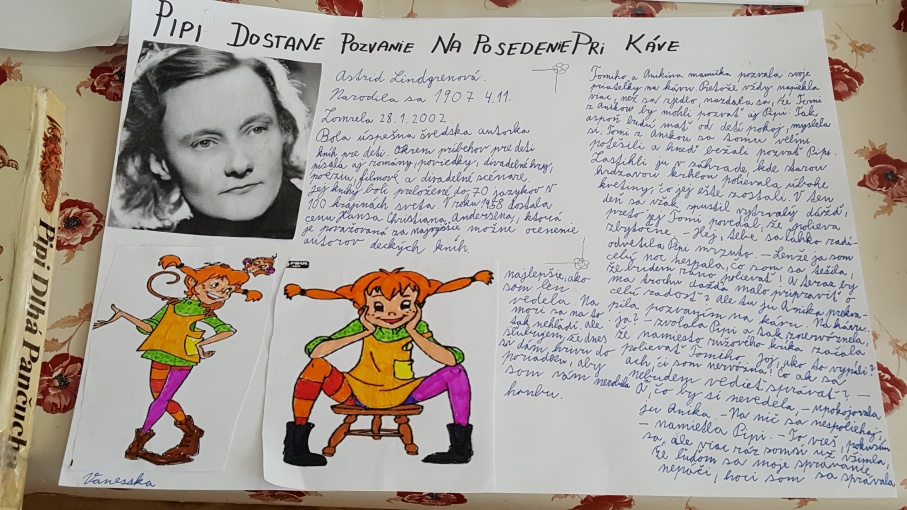 PIPI DOSTANE POZVANIE NA POSEDENIE PRI KÁVE
Astrid Lindgrenová.
Narodila sa 1907 4.11.
Zomrela 28.1.2002.
Bola úspešna švédska autorka
kníh pre deti. Okrem príbehov pre deti
písala aj romány, poviedky, divadelné hry,
poéziu, filmové a divadelné scénare.
Jej knihy boli preložené do 70 jazykov v
100 krajinách sveta. V roku 1958 dostala
cenu Hansa Christiana Andersena, ktorá
je považovaná za najvyššie možné ocenenie
autorov detských kníh.
Tomiho a Anikina mamička pozvala svoje
priateľky na kávu. Pretože vždy napiekla
viac, než sa zjedlo, nazdala sa, že Tomi
s Anikou by mohli pozvať aj Pipi. Tak
aspoň budú mať od detí pokoj, myslela
si. Tomi z Anikou sa tomu veľmi
potešili a hneď bežali pozvať Pipi.
Zastihli ju v záhrade, kde starou
hrdzavou krhlou polievala úbohé
kvetiny, čo jej ešte zostali. V ten
deň sa však spustil vytrvalý dážď,
preto jej Tomi povedal, že polieva
zbytočne. – Hej, tebe sa ľahko radí –
odvetila Pipi mrzuto. – Lenže ja som
celú noc nespala, čo som sa tešila,
že budem ráno polievať! A teraz by
ma trochu dažďa malo pripraviť o
celú radosť? Ale tu ju Anika prekva-
pila pozvaním na kávu. – Na kávu.
– ja? – zvolala Pipi a tak znervóznela,
že namiesto ružového kríka začala
polievať Tomiho. Joj, ako to vypáli?
ach, či som nervózna! Čo ak sa
nebudem vedieť správať? –
Ó, čo by si nevedela, – upokojovala
ju Anika. – Na nič sa nespoliehaj,
– namietla Pipi. – To vieš, pokúsim
sa, ale viac ráz som si už všimla,
že ľuďom sa moje správanie
nepáči, hoci som sa správala
najlepšie, ako
som len
vedela. Na
mori sa na to
tak nehľadí ale
sľubujem, že dnes
si dám
poriadku, aby
som vám nerobila
hanbu.
Vanesska
Pipi Dlhá Pančucha